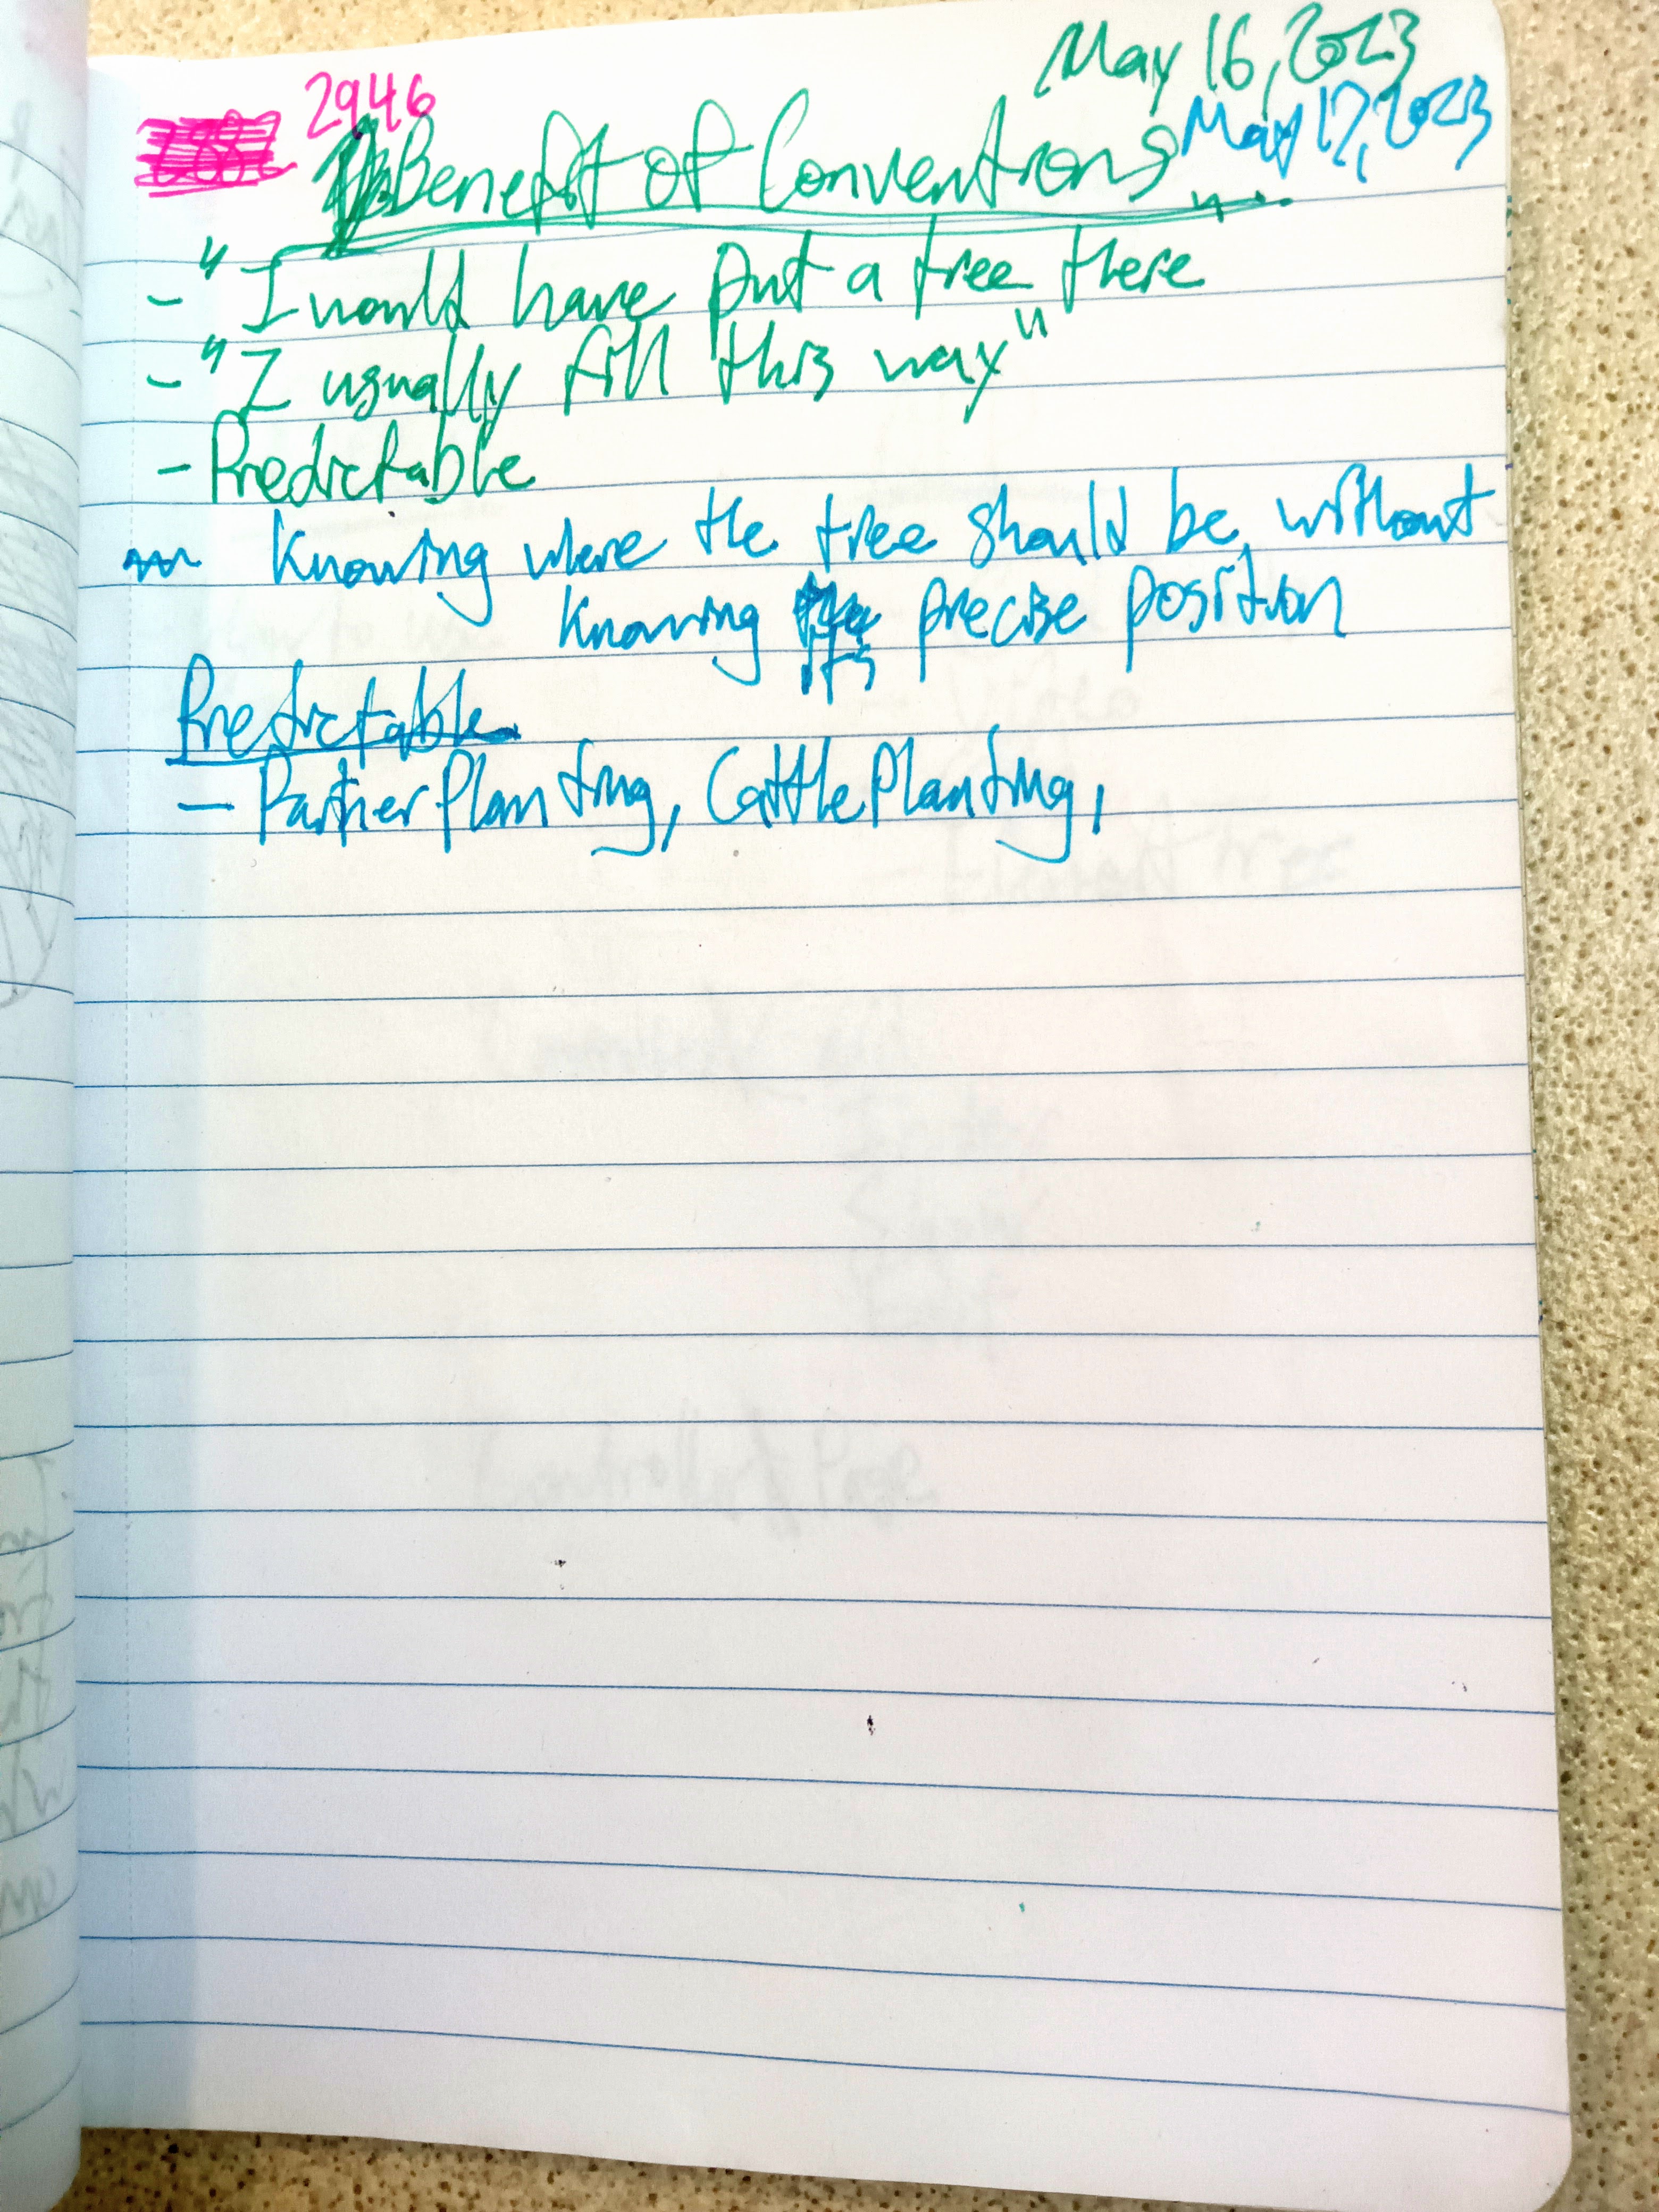 May 16, 2023
2946
May 17, 2023
Benefit of Conventions...
- "I would have put a tree there"
- "I usually fill this way"
- Predictable
Knowing where the tree should be, without
Knowing its precise position
Predictable
- Partner Planting, Cattle Planting,